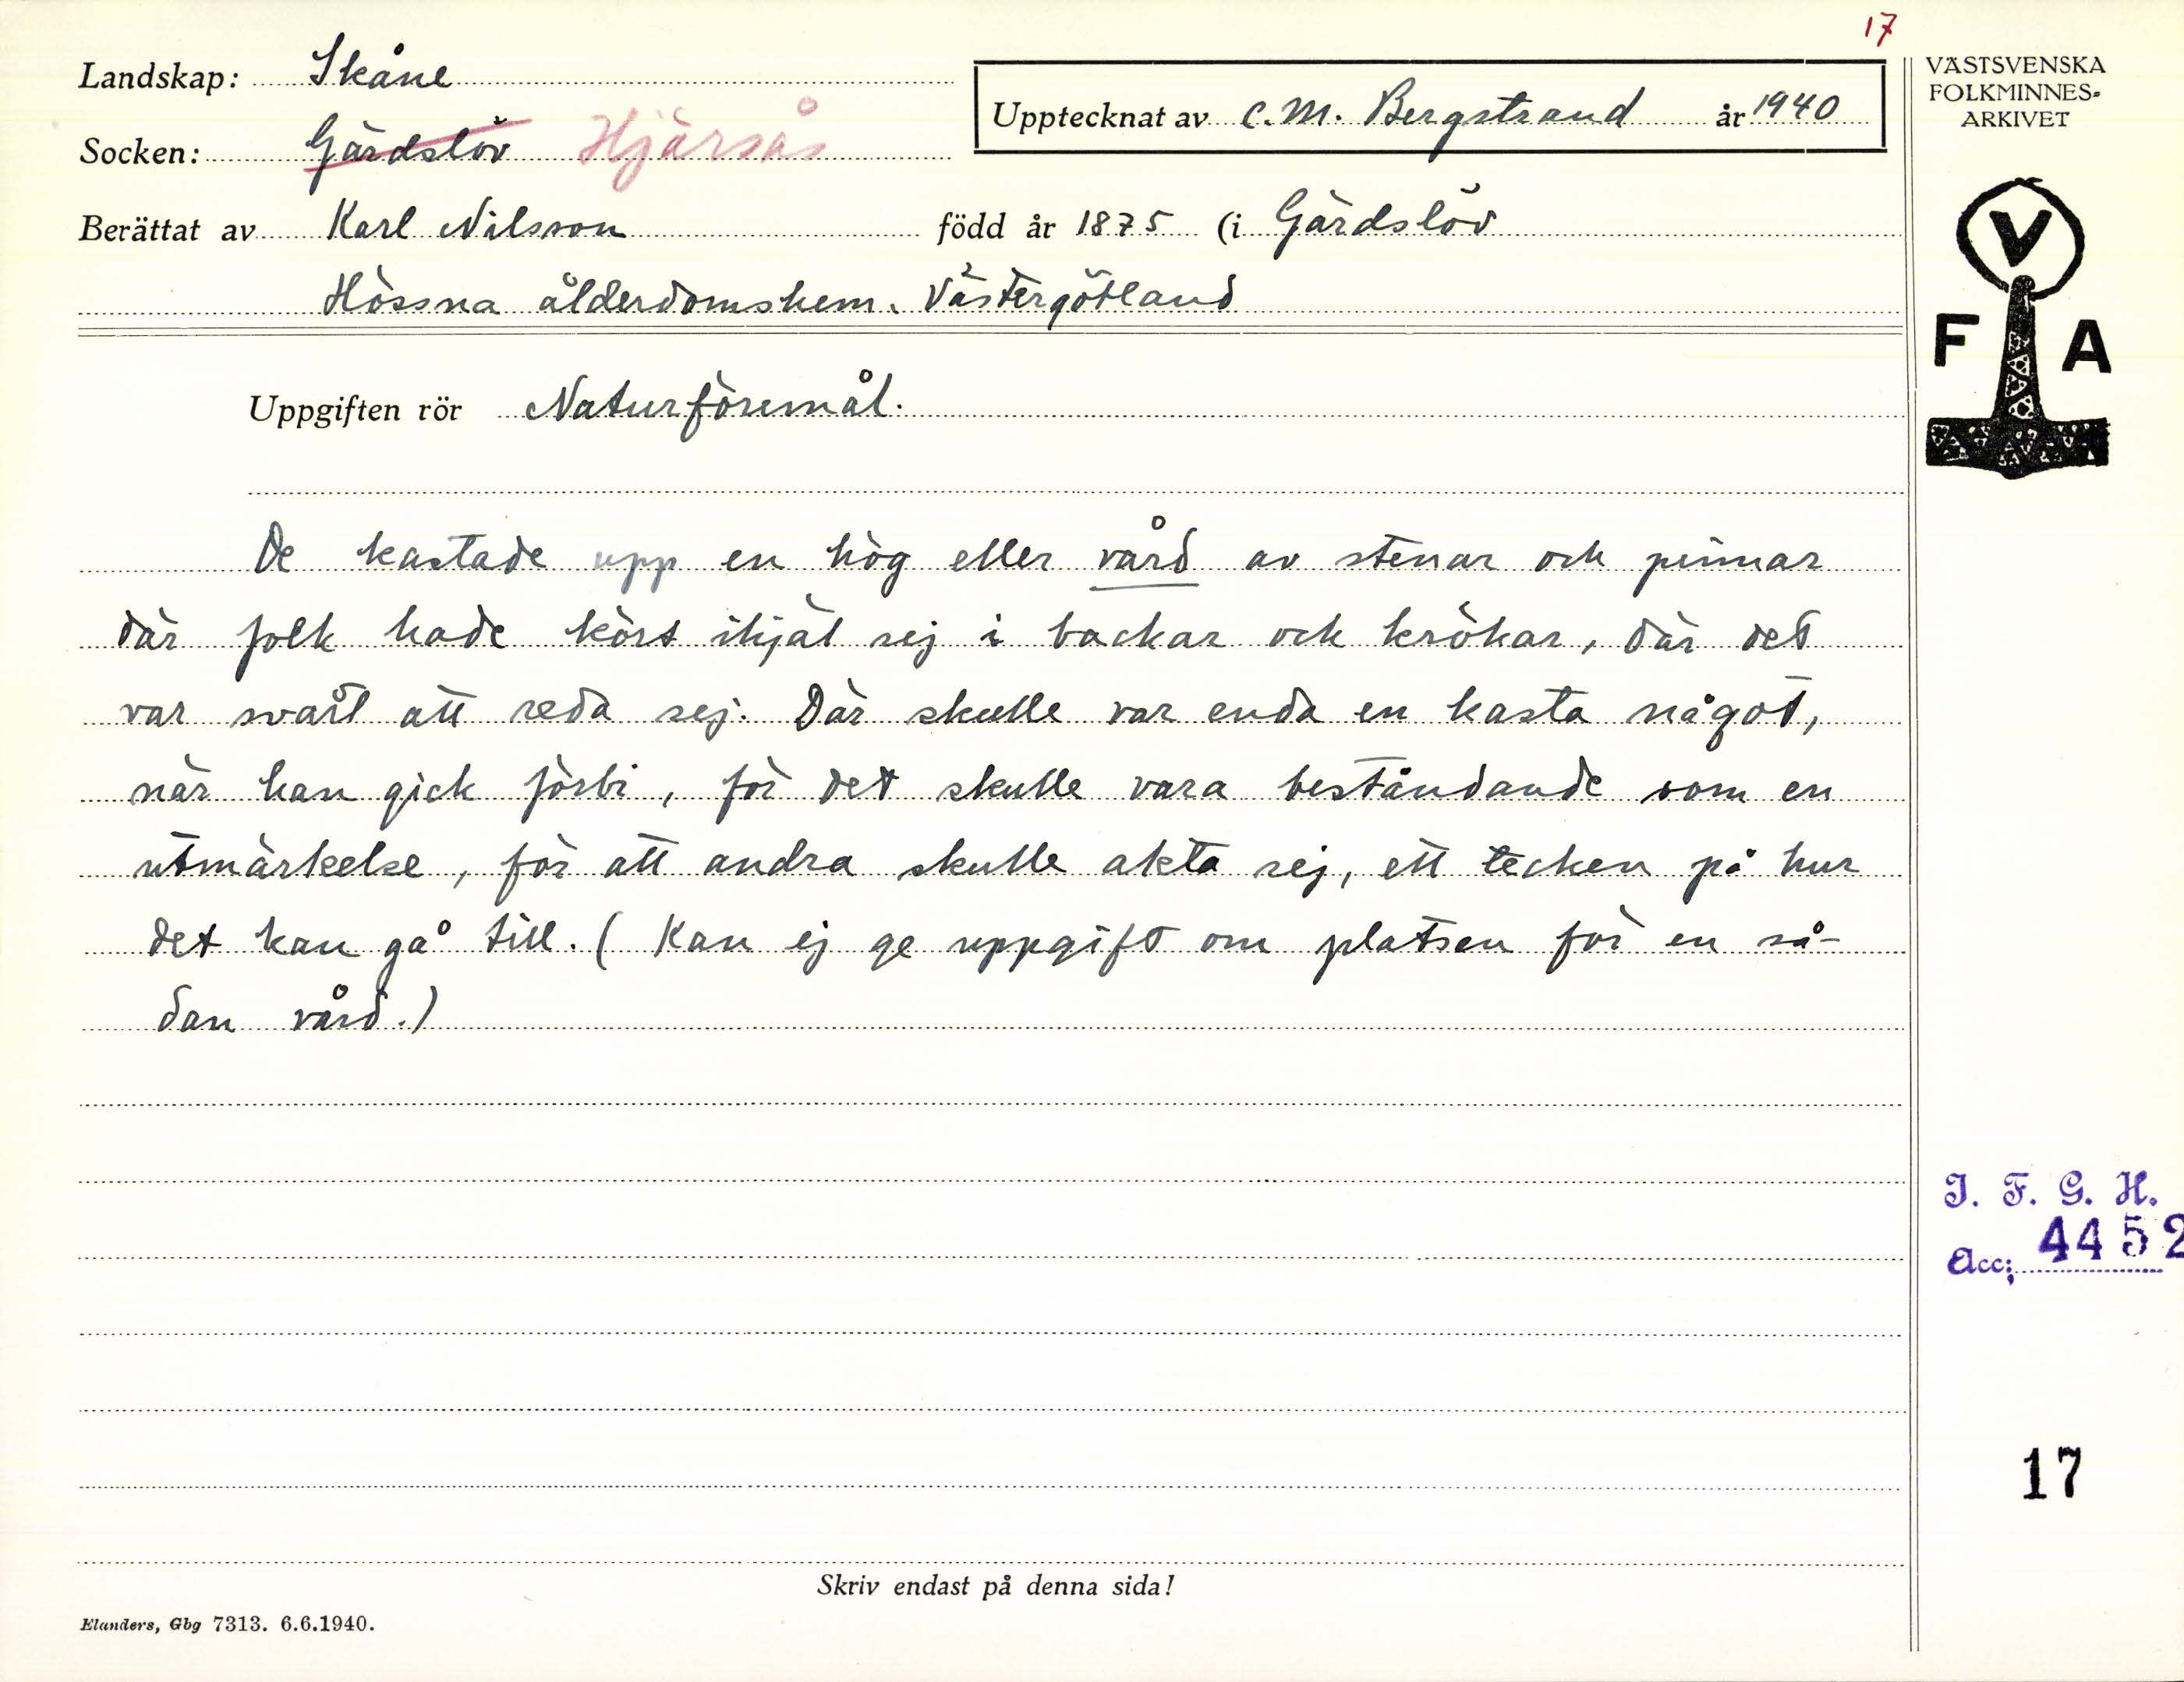 17
Landskap: Skåne
Socken: Gärdslöv Hjärsås
Upptecknat av C. M. Bergstrand år 1940
Berättat av Karl Nilsson född år 1875 (i Gärdslöv
Hössna ålderdomshem. Västergötland
Uppgiften rör Naturföremål.
De kastade upp en hög eller vård av stenar och pinnar
där folk hade kört ihjäl sej i backar och krökar, där det
var svårt att reda sej. Där skulle var enda en kasta något,
när han gick förbi, för det skulle vara beståndande som en
utmärkelse, för att andra skulle akta sej, ett tecken på hur
det kan gå till. (Kan ej ge uppgift om platsen för en så-
dan vård.)
Skriv endast på denna sida!
Elanders, Gbg 7313. 6.6.1940.
VÄSTSVENSKA
FOLKMINNES-
ARKIVET
V
F A
I. F. G. H.
Acc: 4452
17